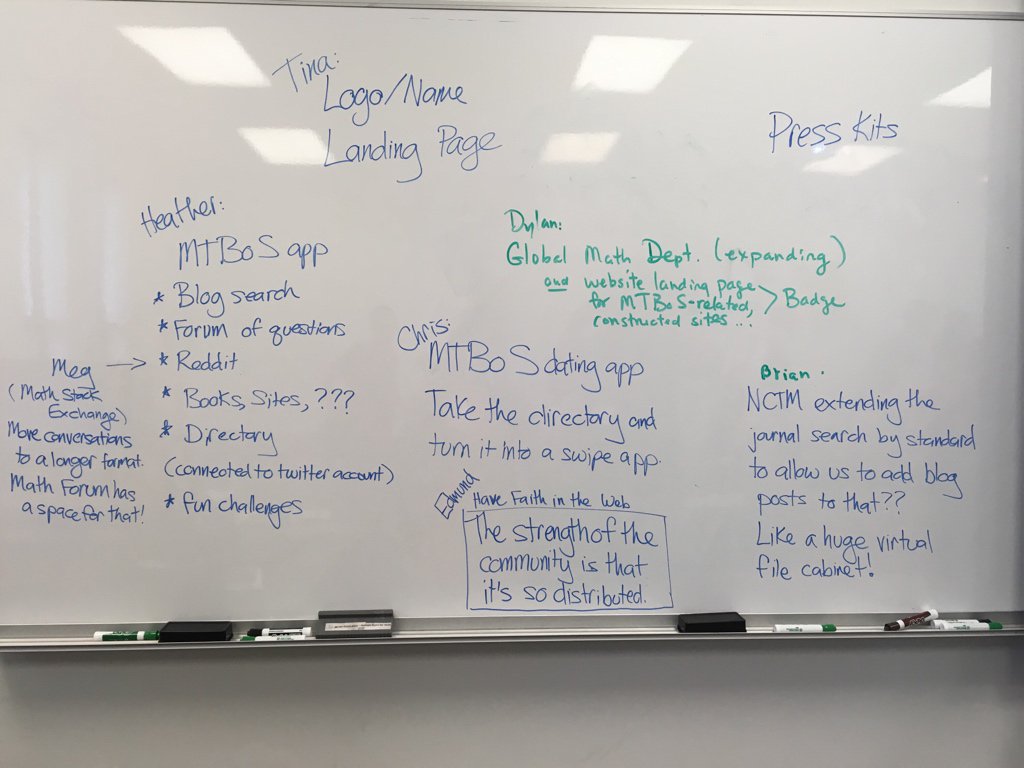 Tina:
Logo/Name
Landing Page
Press Kits
Heather:
MTBoS app
* Blog search
* Forum of questions
* Reddit
* Books, Sites, ???
* Directory
(connected to twitter account)
* fun challenges
Meg →
(Math Stack
Exchange)
More conversations
to a longer format.
Math Forum has
a space for that!
Dylan:
Global Math Dept. (expanding)
and website landing page
for MTBoS-related,
constructed sites...
> Badge
Chris:
MTBoS dating app
Take the directory and
turn it into a swipe app.
Edmund
Have Faith in the Web
The strength of the
community is that
it's so distributed.
Brian.
NCTM extending the
jornal search by standard
to allow us to add blog
posts to that??
Like a huge virtual
file cabinet!